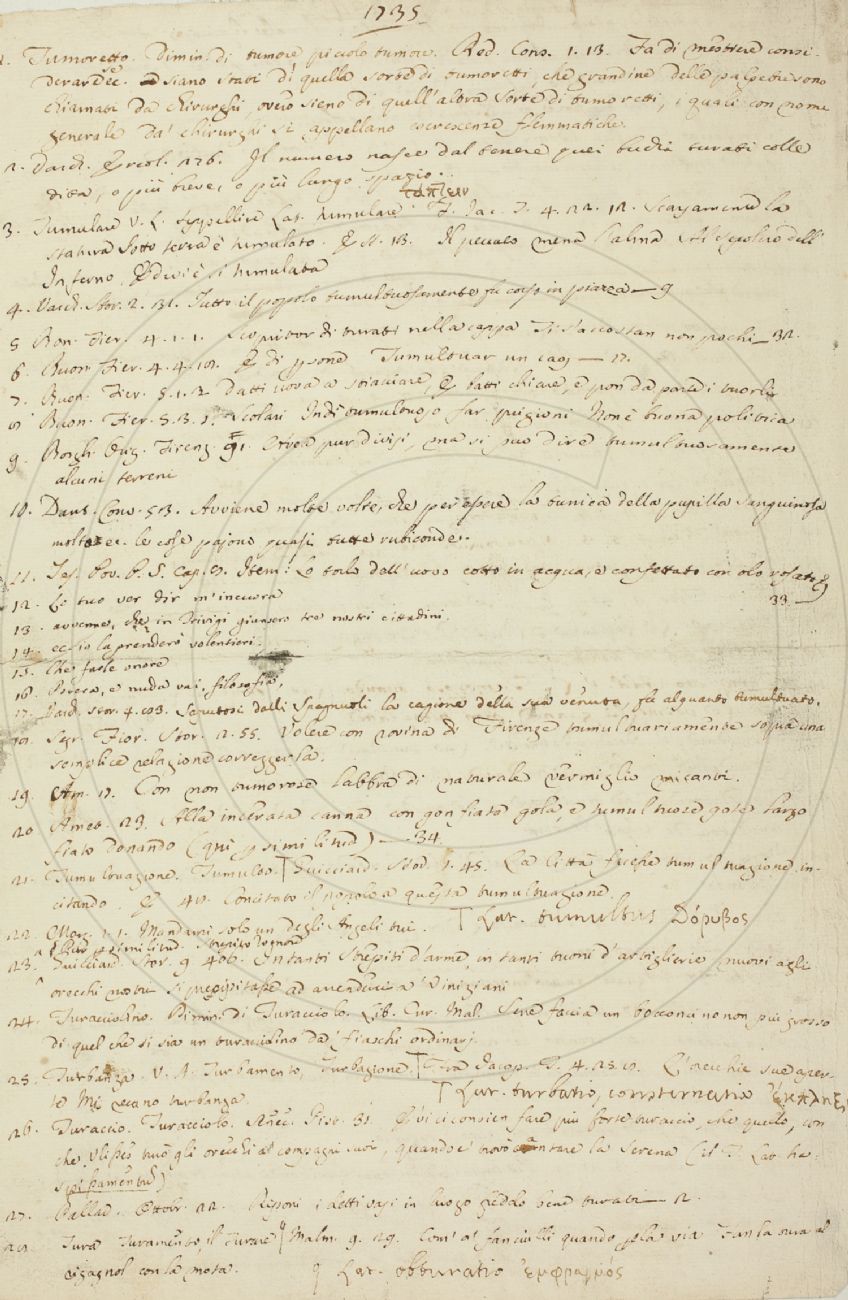 1735
1. Tumoretto. Dimin. di tumore piccolo tumore. Red. Cons. 1. 13. Fa di mestiere consi-
derare se siano stati di quella sorte di tumoretti, che grandine delle palpebre sono
chiamati da chirurghi, ovvero sieno di quell'altra sorte di tumoretti, i quali con nome
generale da' chirurghi si appellano escrescenze flemmatiche.
2. 226. Il numero nasce dal tenere quei buchi turati colle
dita, o più breve, o più lungo spazio.
θάπτειν
3. Tumulare V. L. Seppellire Lat. tumulare. F. Jac. T. 4. 22. 12. la
statura sotto terra è tumulato. E st. 18. Il peccato mena l'alma Al sepolcro dell'
Inferno, E quivi è si tumulata
4. Varch. Stor. 2. 31. Tutto il popolo tumultuosamente fu corso in piazza — 9
5. Buon. Fier. 4. 1. 1. di turati nella cappa Ti s'accostan non pochi — 32.
6. Buon. Fier. 4. 4. 19. E di Tumultuar un — 17.
7. Buon. Fier. 5. 1. 2 Datti nova a stiacciare, E batti chiare, e
8. Buon. Fier. 5. 3. 1. Scolari Indi far prigioni Non è buona politica
9. Borgh. Orig. Firenz. 91. pur divisi, ma si può dire tumultuosamente
alcuni terreni
10. Dant. Conv. 58. Avviene molte volte, che per essere la tunica della pupilla sanguinosa
molto ec. le cose pajono quasi tutte rubiconde.
11. Tes. Pov. P. S. cap. 8. Item: Lo torlo dell'uovo cotto in acqua, e confettato con olo rosato E
12. Lo tuo ver dir m'incuora 33 —
13. avvenne, che in Trivigi giunsero tre nostri cittadini.
14. ec. io la prenderò volentieri.
15. Che farle onore
16. Povera, e nuda vai, filosofia,
17. Varch. stor. 4. 93. Saputosi dalli Spagnuoli la cagione della sua venuta, fu alquanto tumultuato.
18. Segr. Fior. Stor. 2. 55. Volere con rovina di Firenze tumultuariamente sopra una
semplice relazione correggerla.
19. Am. 17. Con non tumorose labbra di naturale vermiglio micanti.
20 Amet. 29. Alla incerata canna con gonfiata gola e tumultuose gote largo
fiato donando (qui p similitud) — 34.
21. Tumultuazione. Tumulto. T Guicciard. Stor. 1. 45. La città fusse tumultuazione in-
citando. E 40. Concitato il popolo a questa tumultuazione.
22. Morg. 1. 1. Mandami solo un degli Angeli tui. T Lat. tumultus Θόρυβος
Per similitud. strepito tuono
23. Guicciard. Stor. 9 406. In tanti strepiti d'arme, in tanti tuoni d'artiglierie nuovi agli
orecchi nostri si precipitasse ad arrendersi a' Viniziani
24. Turacciolino. Dimin. di Turacciolo. Lib. Cur. Mal. Sene faccia un bocconcino non più grosso
di quel che si sia un turacciolino da' fiaschi ordinarj.
25. Turbanza. V. A. Turbamento, Turbazione. T Fra Jacop. T. 4. 25. 9. L'orecchie sue aper-
te Mi recano turbanza. T Lat. turbatio, consternatio
26. Turaccio. Turacciolo. Pist. 31. E' vi ci convien fare più forte turaccio, che quello, con
che Ulisse turò gli orecchi a' compagni suoi, quando e' trovò cantare la Serena (il T. Lat. ha
spissamentum)
27. Pallad. Ottobr. 22. Riponi i detti vasi in luogo freddo bene turati — 2.
28. Tura Turamento, il Turare T Malm. 9. 29. Com' a' fanciulli quando p la via Fan la tura al
rigagnol con la mota. T Lat. obturatio ἔμφραγμός